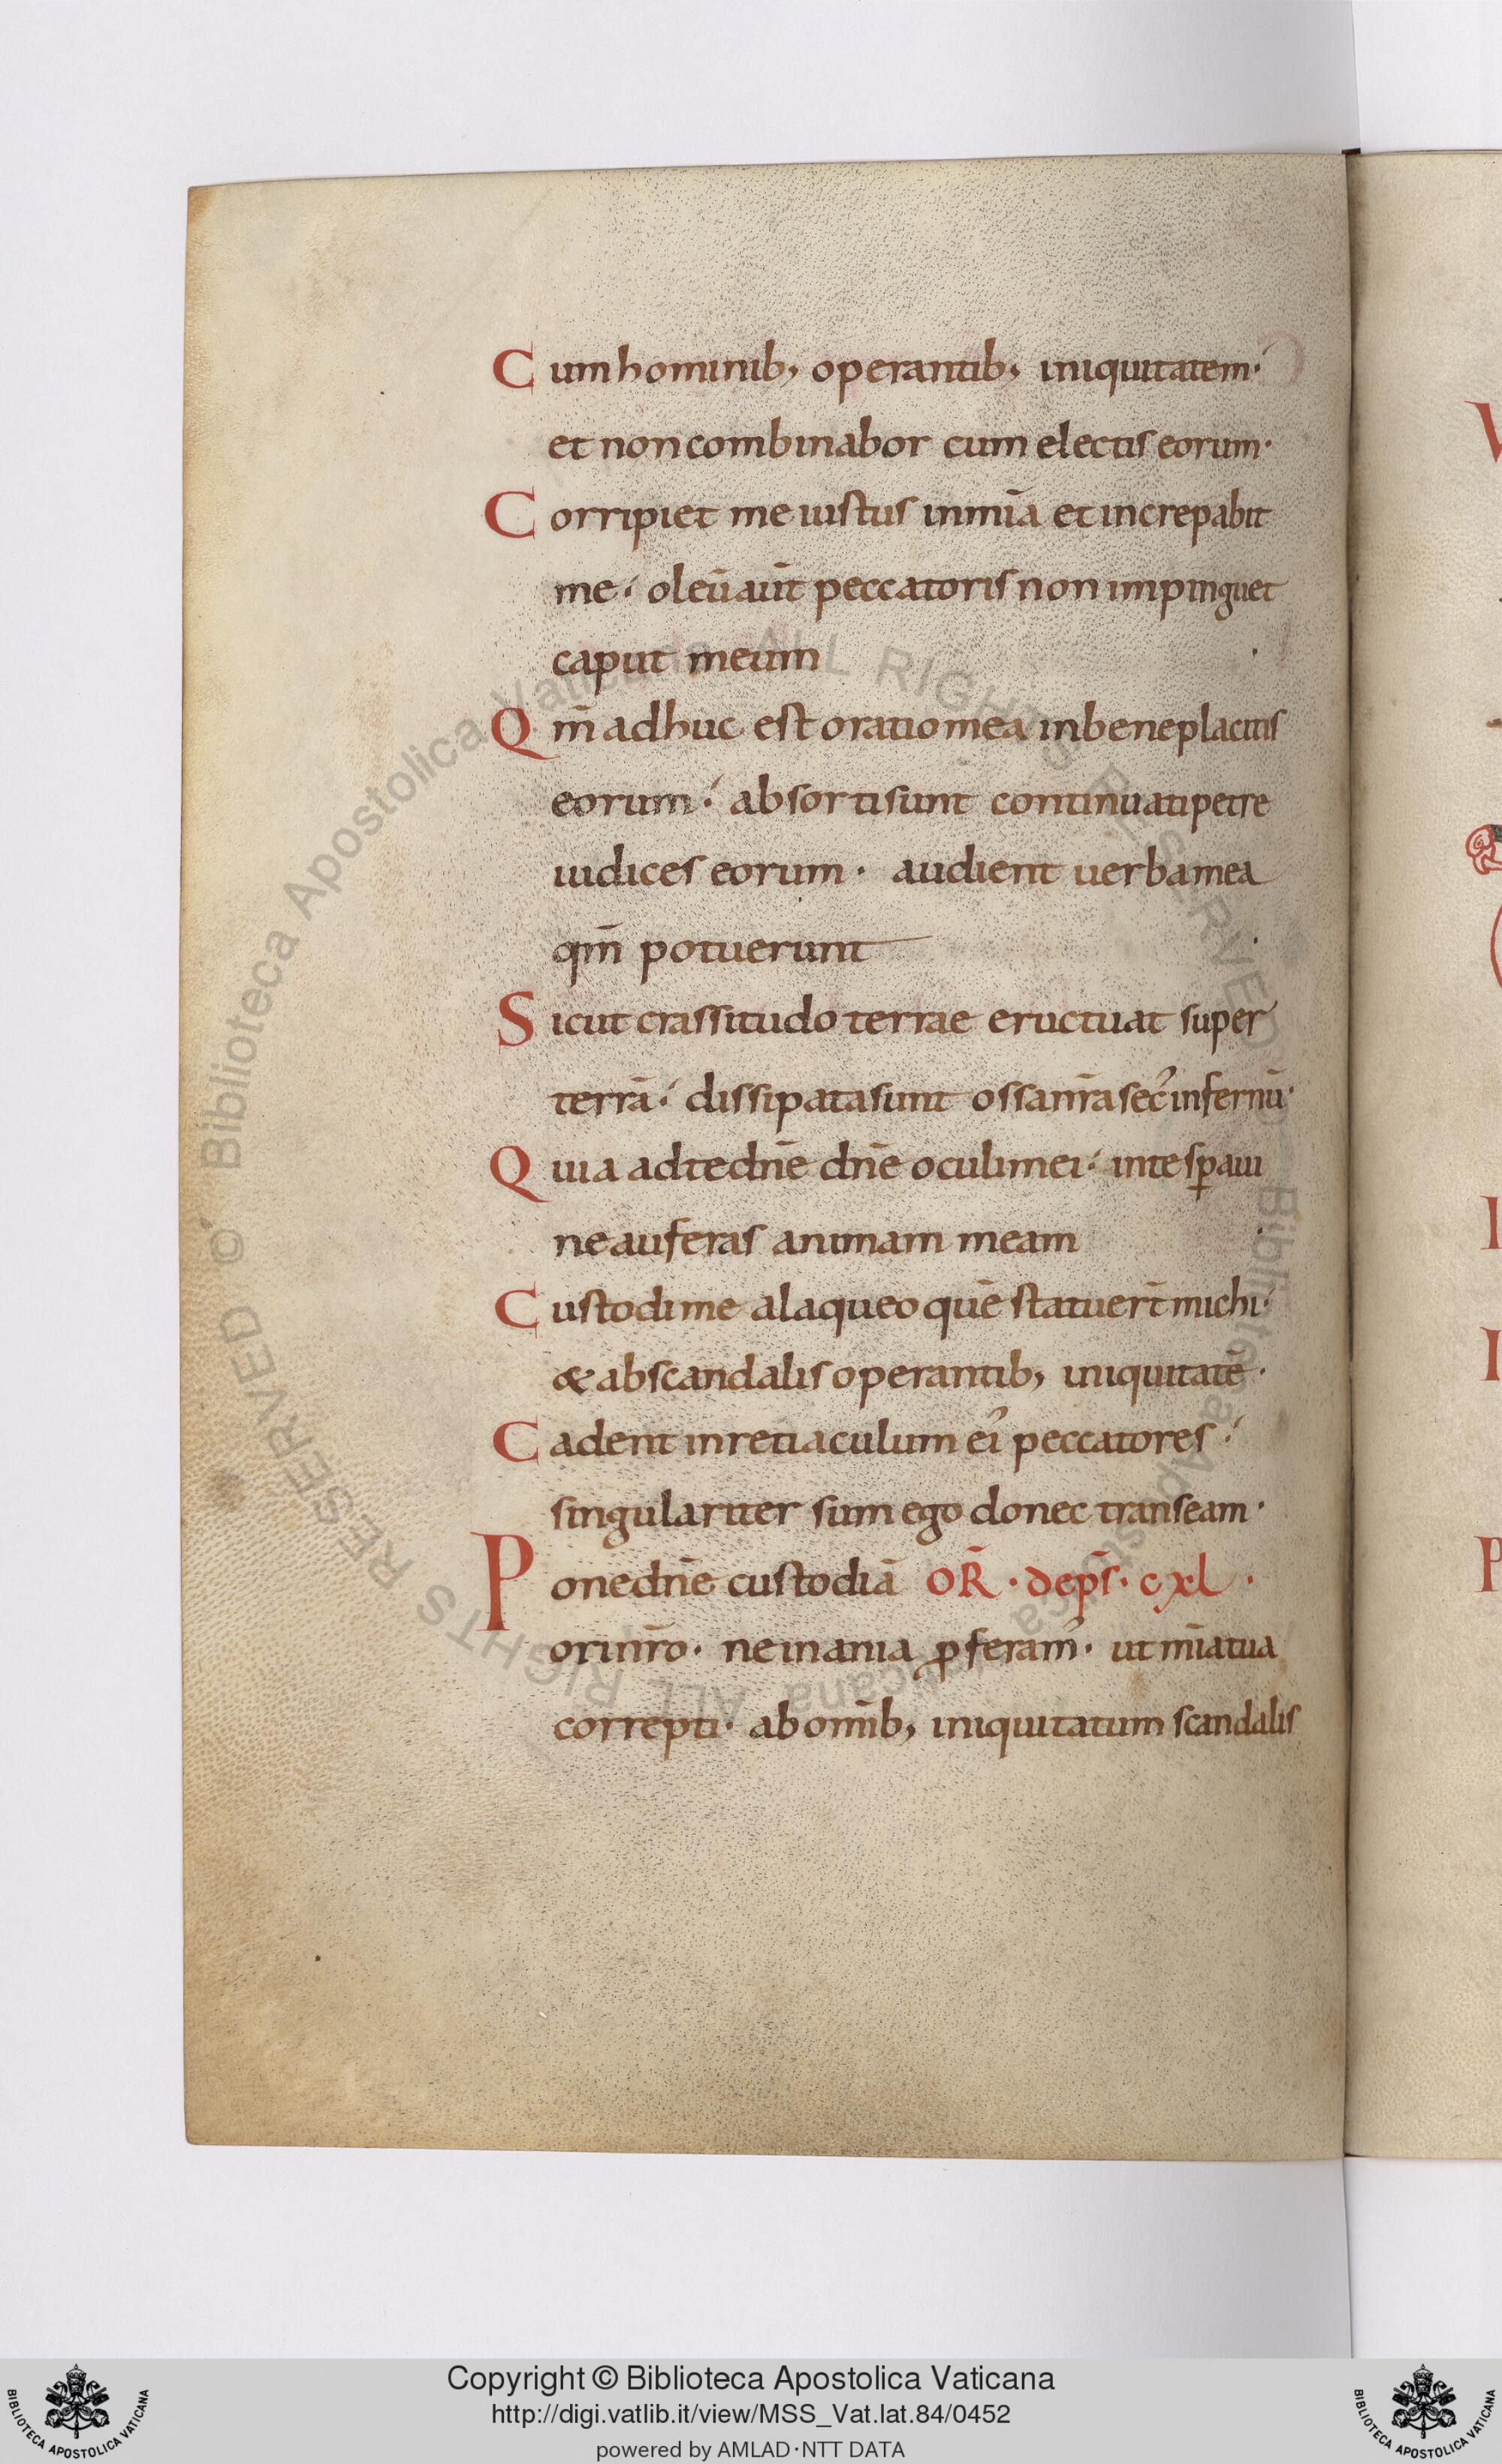 Cum hominib; operantib; iniquitatem·
et non combinabor cum electis eorum·
Corripiet me iustus in mīa et increpabit
me· oleū aūt peccatoris non impinguet
caput meum ·
Qm̄ adhuc est oratio mea in beneplacitis
eorum· absorti sunt continuati petre
iudices eorum· audient uerba mea
qm̄ potuerunt ·
Sicut crassitudo terrae eructuat super
terrā· dissipata sunt ossa nr̄a sec̓ infernū·
Quia ad te dn̄e dn̄e oculi mei· in te sꝑaui
ne auferas animam meam ·
Custodi me a laqueo quē statuer̄t michi·
& ab scandalis operantib; iniquitatē·
Cadent in retiaculum ei̓ peccatores·
singulariter sum ego donec transeam·
Pone dn̄e custodiā OR̄· de ps̄· cxl·
ori nr̄o· ne inania ꝓferam̓· ut mīa tua
correpti· ab om̄ib; iniquitatum scandalis
Biblioteca Apostolica Vaticana ALL RIGHTS RESERVED ©
Copyright © Biblioteca Apostolica Vaticana
http://digi.vatlib.it/view/MSS_Vat.lat.84/0452
powered by AMLAD·NTT DATA
BIBLIOTECA APOSTOLICA VATICANA
BIBLIOTECA APOSTOLICA VATICANA